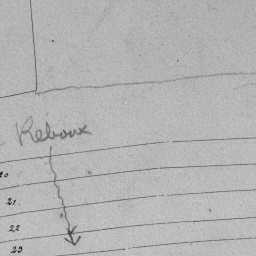 Reboux
20
21
22
23